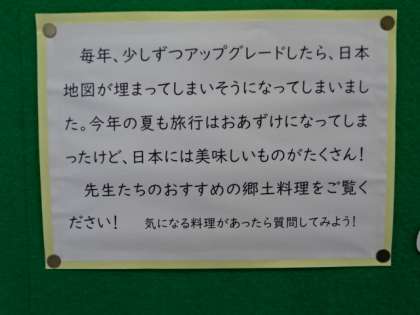 毎年、少しずつアップグレードしたら、日本
地図が埋まってしまいそうになってしまいまし
た。今年の夏も旅行はおあずけになってしま
ったけど、日本には美味しいものがたくさん！
先生たちのおすすめの郷土料理をご覧く
ださい！　気になる料理があったら質問してみよう！